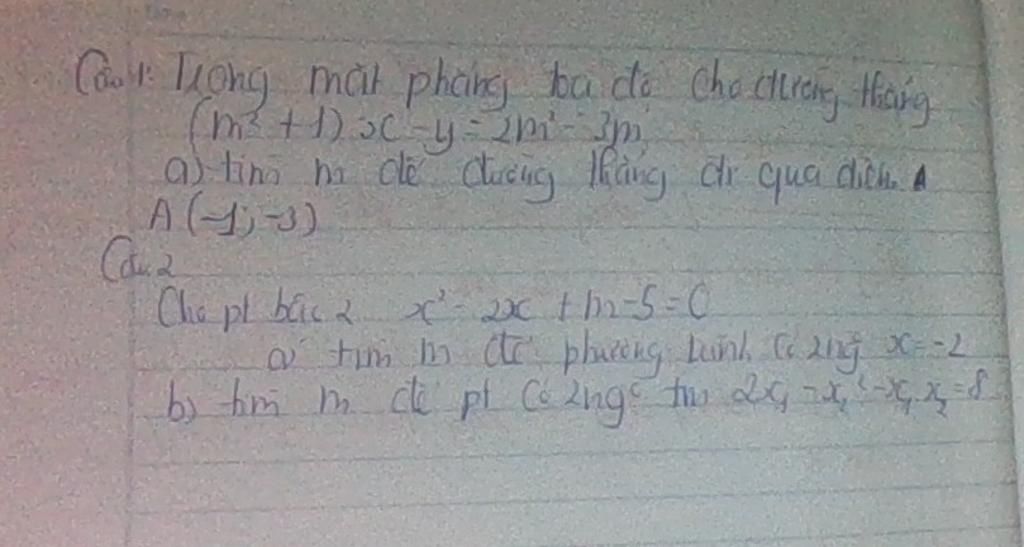 Câu 1: Trong mặt phẳng tọa độ cho đường thẳng
(m² + 1)x - y = 2m² - 3m
a) tìm m để đường thẳng đi qua điểm A
A(-1; -3)
Câu 2
Cho pt bậc 2 x² - 2x + m - 5 = 0
a) tìm m để phương trình có x = -2
b) tìm m để pt có 2 = 8